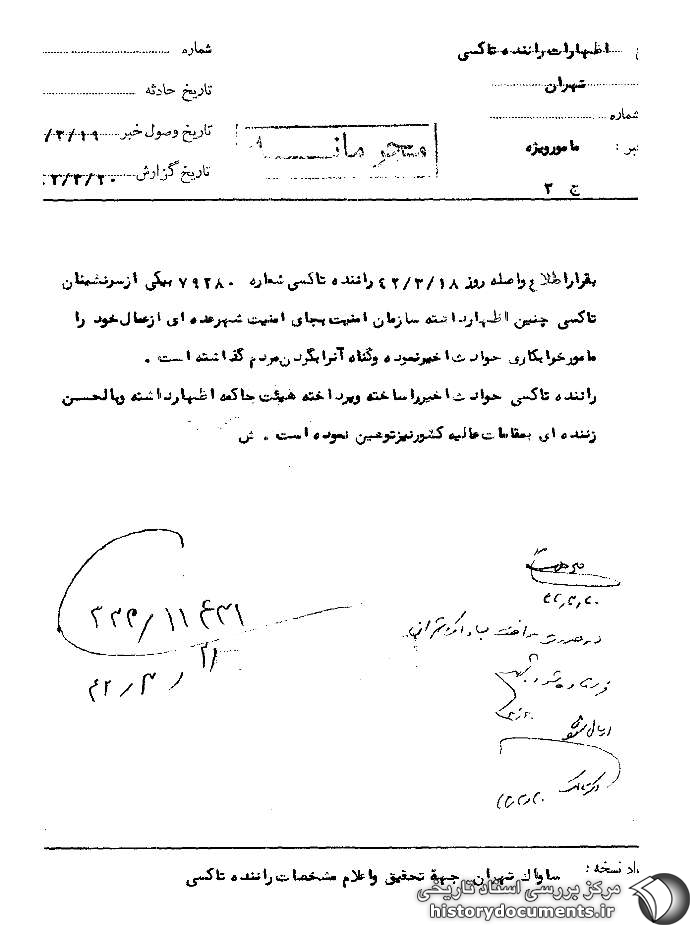 اظهارات راننده تاکسی
شماره
تهران
تاریخ حادثه
شماره
تاریخ وصول خبر /۳/۱۹
محرمانه
مامور ویژه
تاریخ گزارش ۲/۳/۲۰
ج ۲
بقرار اطلاع واصله روز ۴۲/۳/۱۸ راننده تاکسی شماره ۷۹۲۸۰ بیکی از سرنشینان
تاکسی چنین اظهار داشته سازمان امنیت بجای امنیت شهر عده ای از عمال خود را
مامور خرابکاری حوادث اخیر نموده و گناه آنرا بگردن مردم گذاشته است .
راننده تاکسی حوادث اخیر را ساخته و پرداخته هیئت حاکمه اظهار داشته و با لحن
زننده ای بمقامات عالیه کشور نیز توهین نموده است . ش
۴۲/۳/۲۰
در صورت
ساواک تهران
فرستاده شود
ارسال شود
۳۳۳/۱۱۶۳۱
۴۲/۳/۲۱
نسخه : ساواک تهران جهة تحقیق و اعلام مشخصات راننده تاکسی
مرکز بررسی اسناد تاریخی
historydocuments.ir